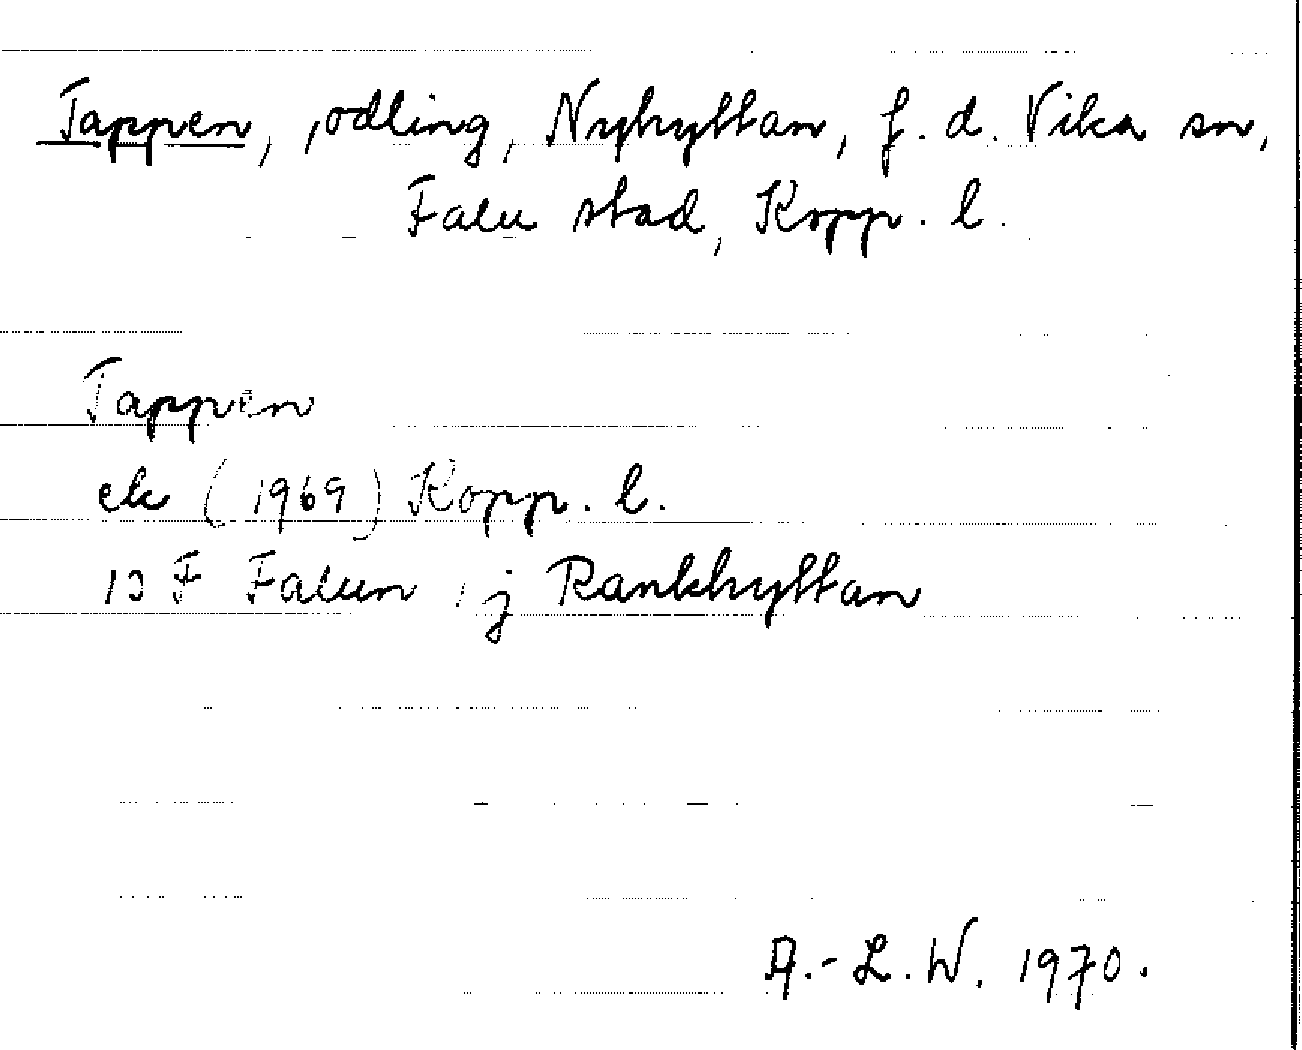 Tappen, odling, Nyhyttan, f. d. Vika sn,
Falu stad, Kopp. l.
Tappen
ek (1969) Kopp. l.
13 F Falun j Rankhyttan
A.-L. W. 1970.